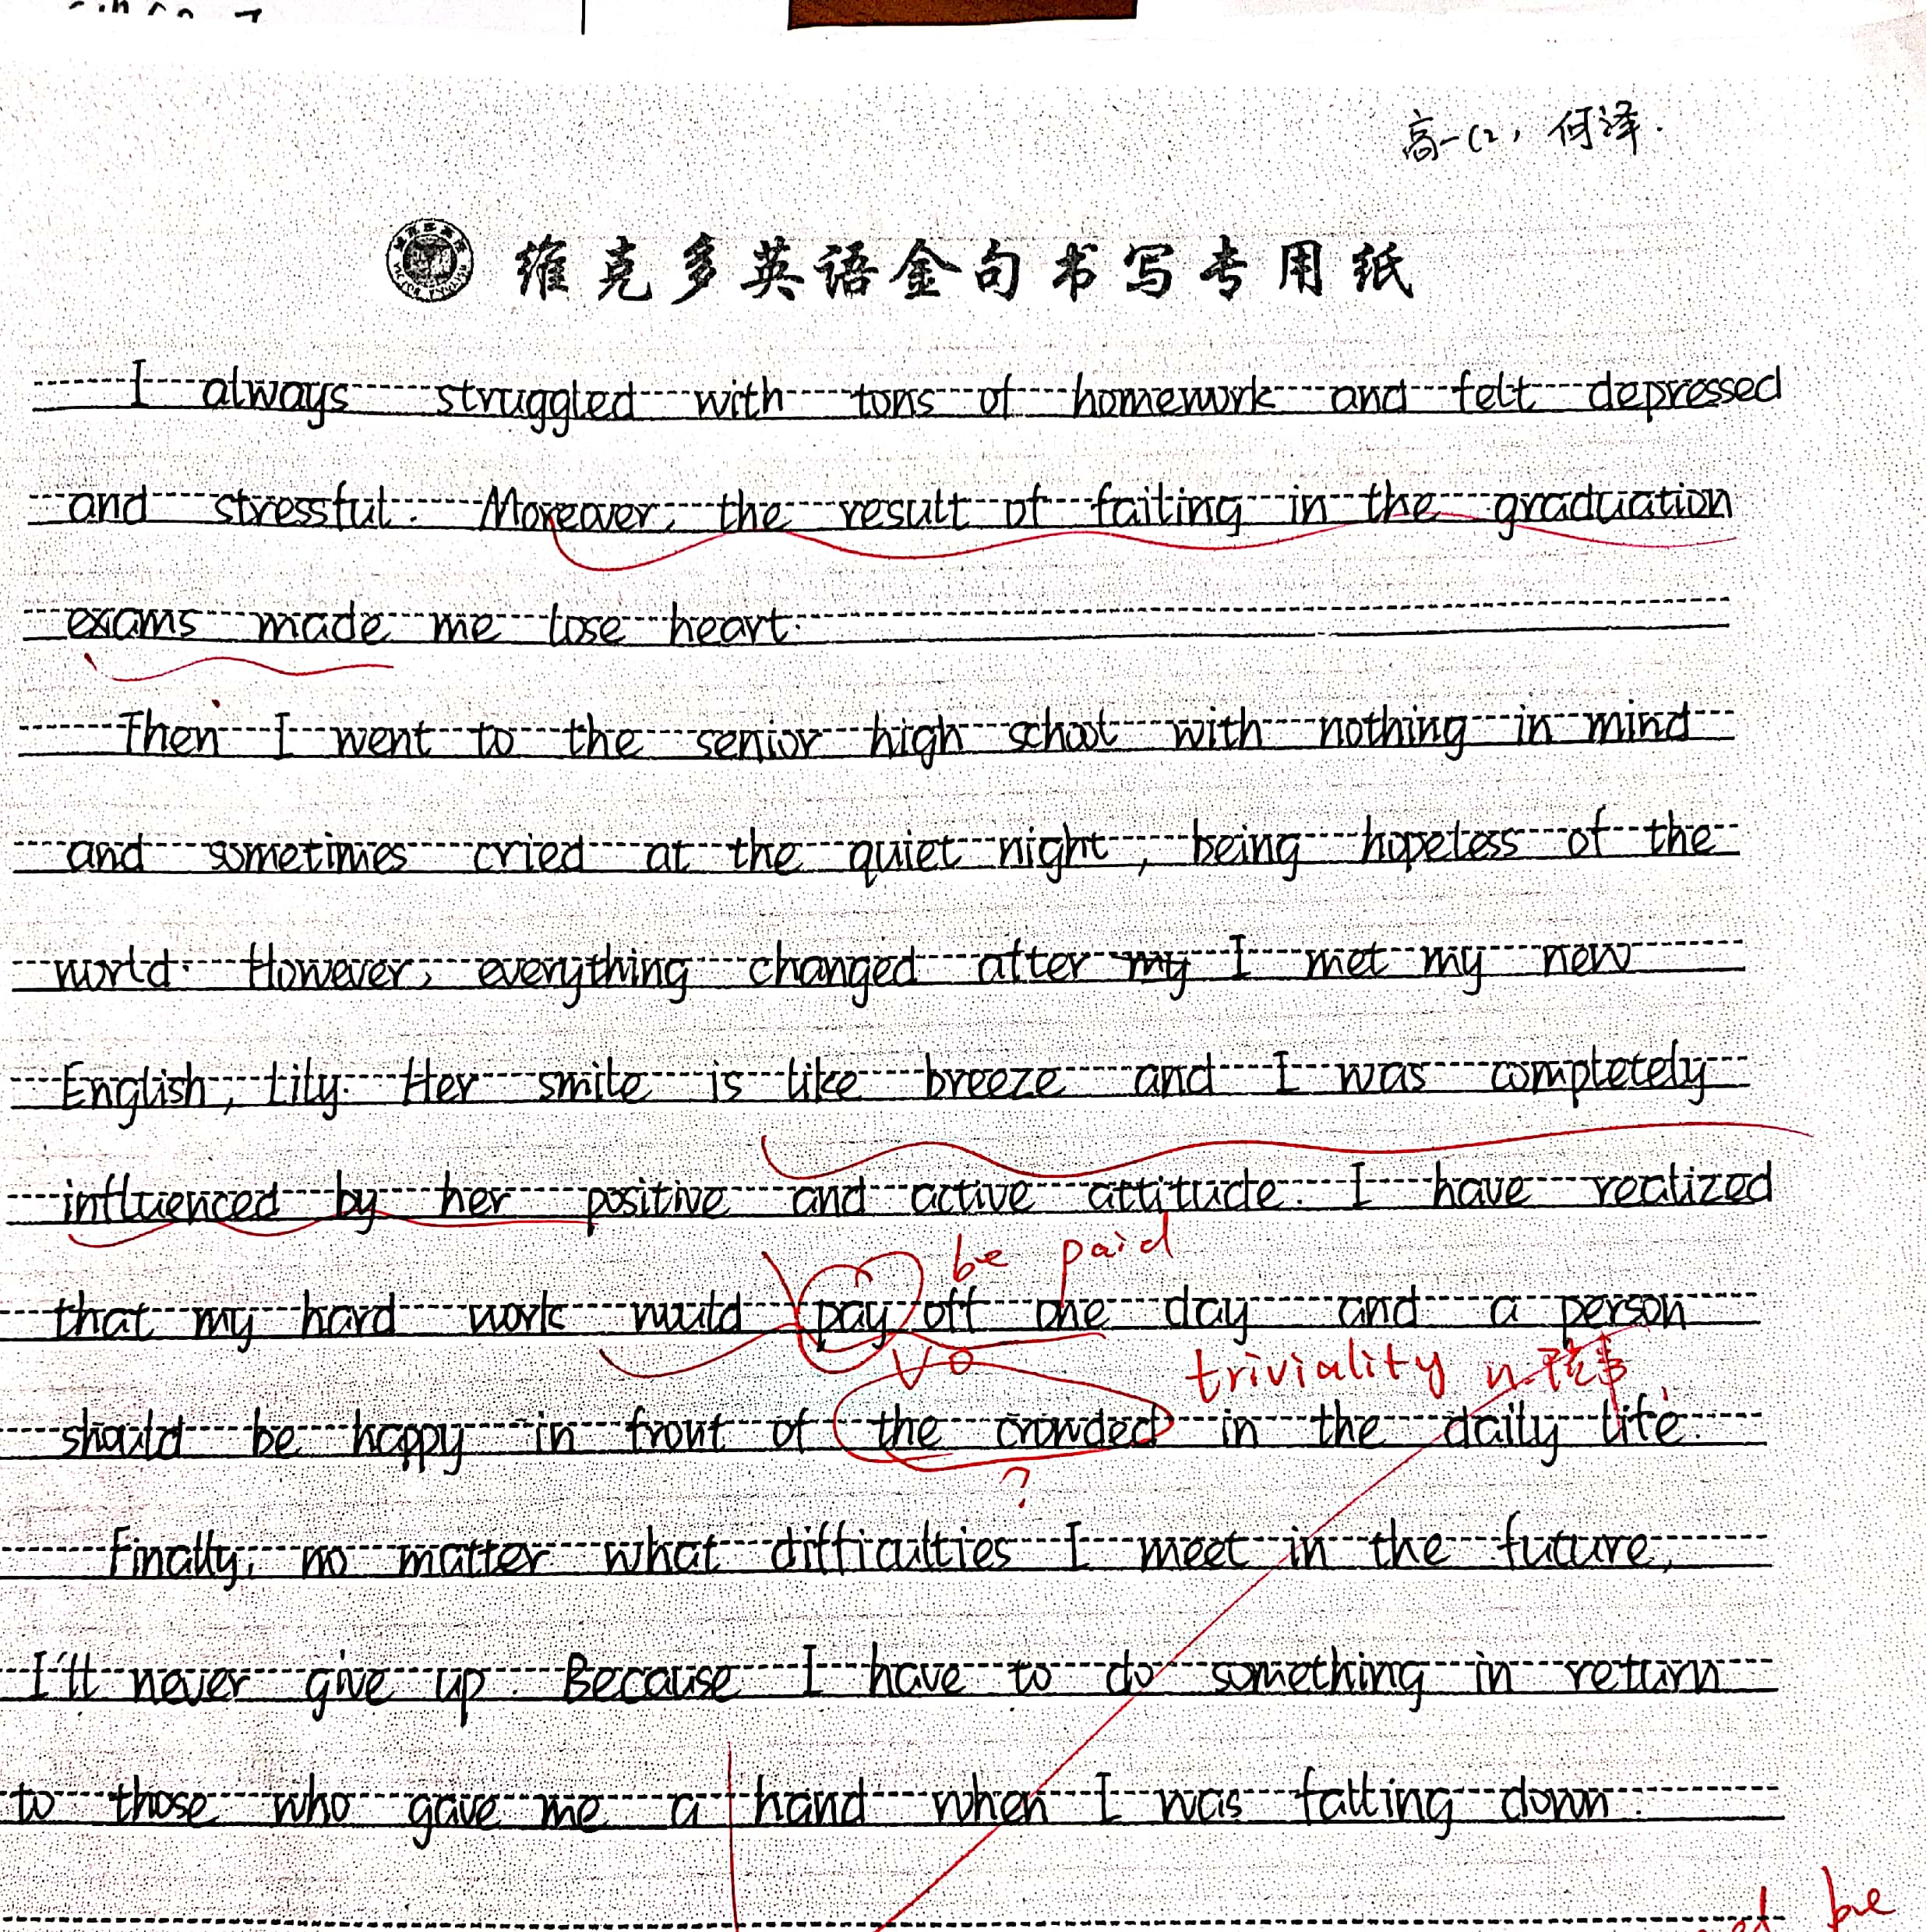 高一(2) 何泽.
维克多英语金句书写专用纸
I always struggled with tons of homework and felt depressed
and stressful. Moreover, the result of failing in the graduation
exams made me lose heart.
Then I went to the senior high school with nothing in mind
and sometimes cried at the quiet night, being hopeless of the
world. However, everything changed after my I met my new
English, Lily. Her smile is like breeze and I was completely
influenced by her positive and active attitude. I have realized
be paid
that my hard work would pay off one day and a person
triviality n.琐事
should be happy in front of the crowded in the daily life.
?
Finally, no matter what difficulties I meet in the future,
I'll never give up. Because I have to do something in return
to those who gave me a hand when I was falling down.
be